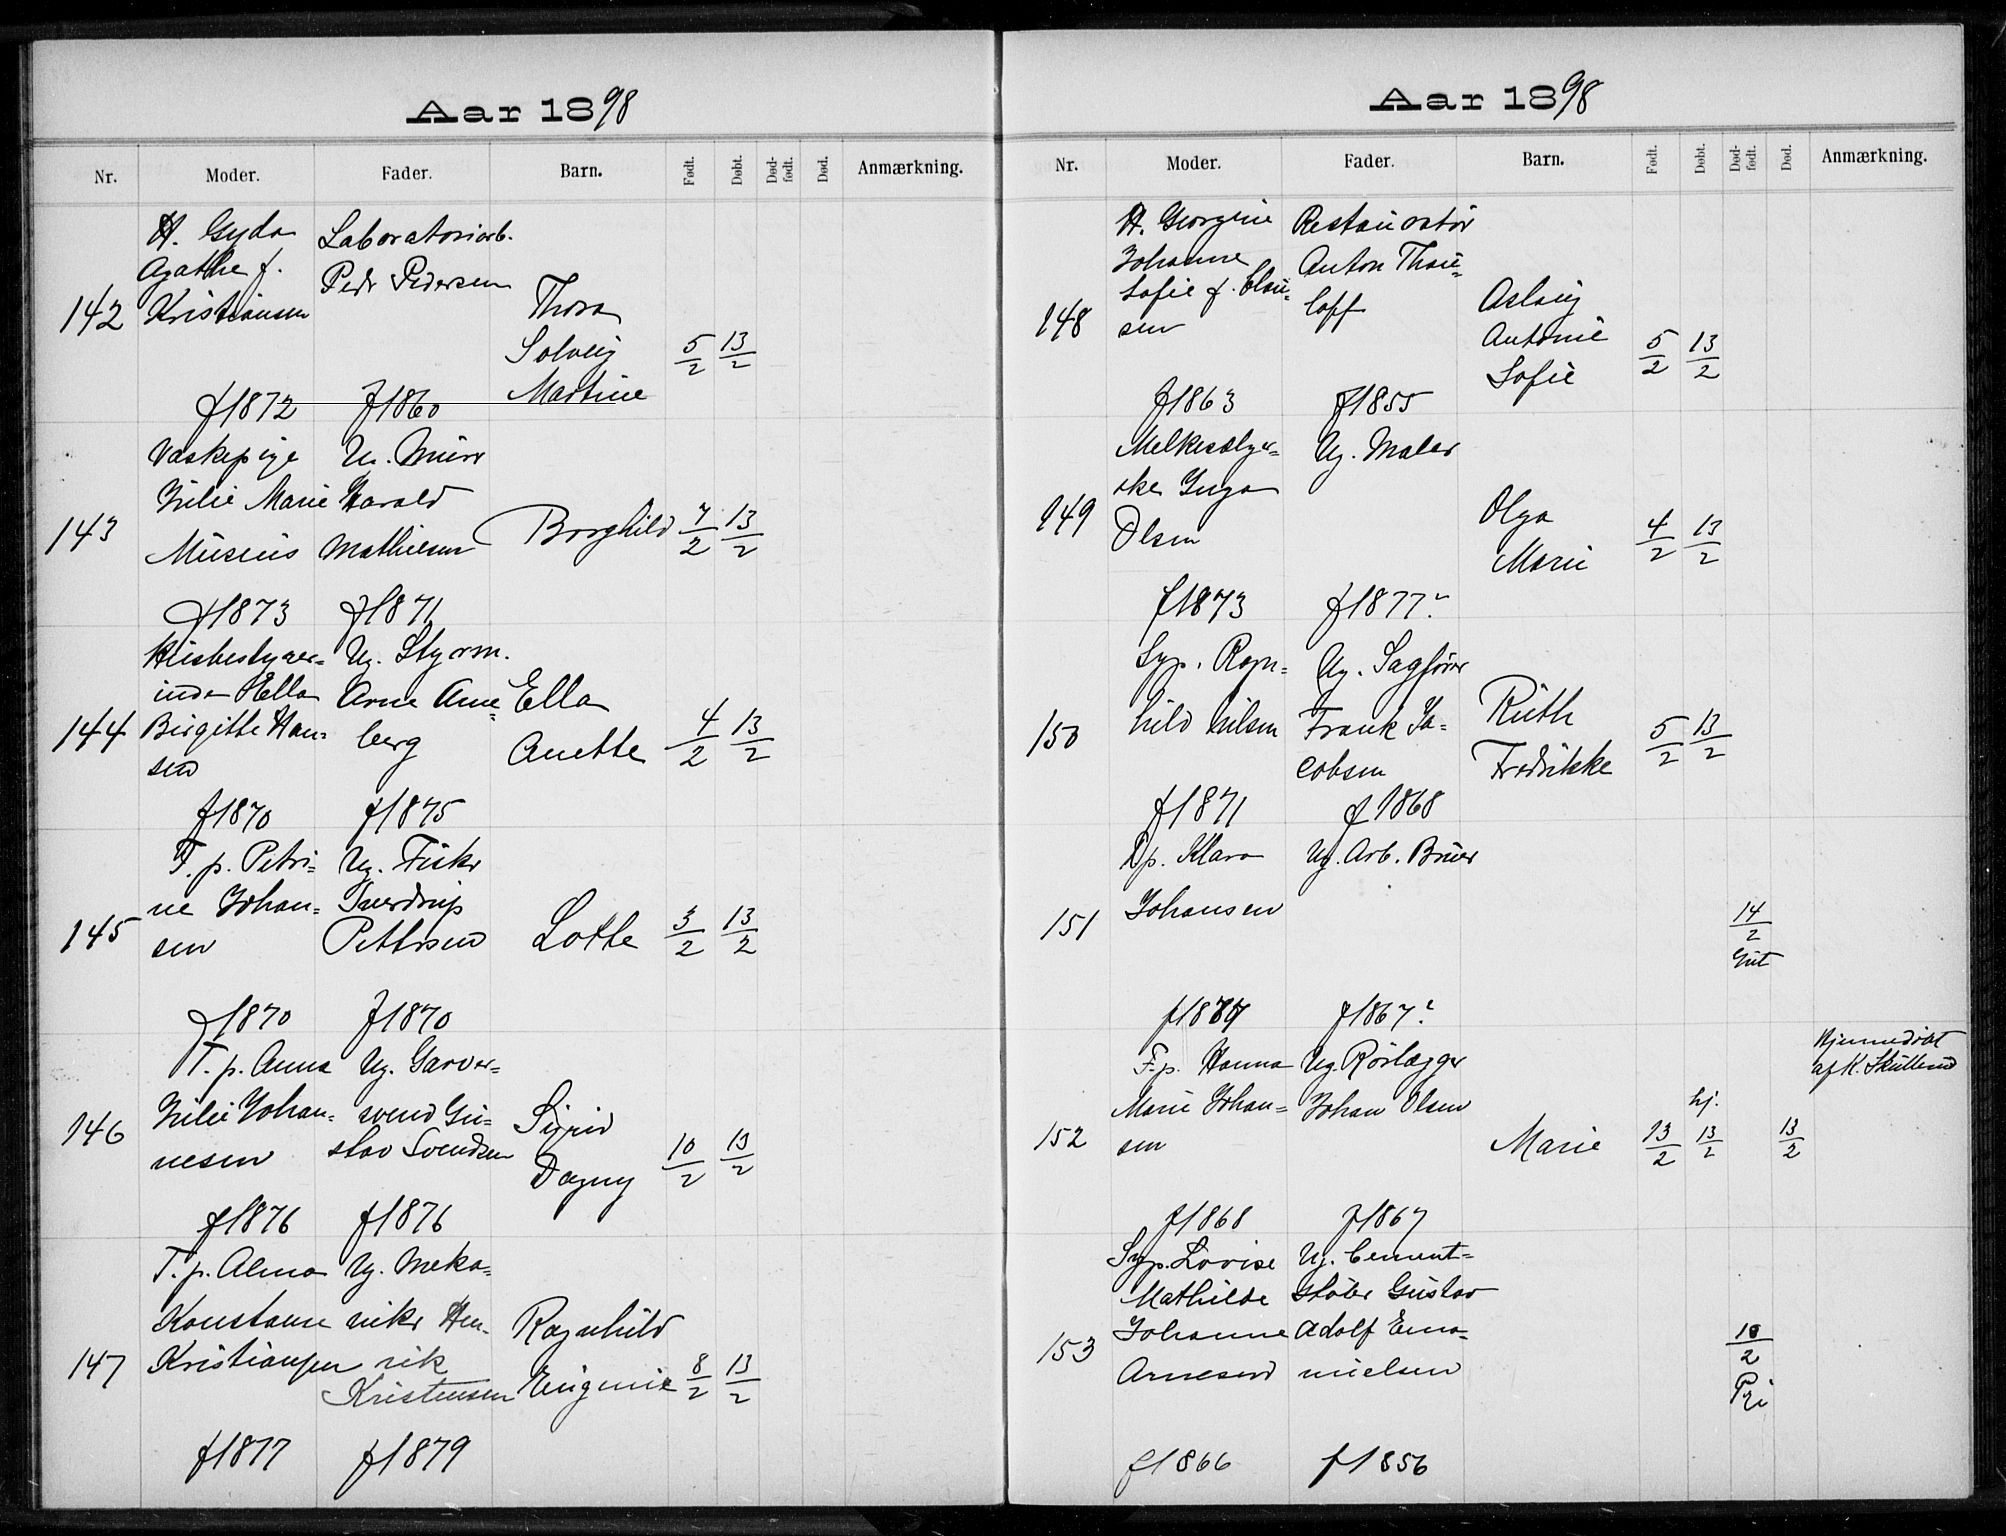 Aar 1898
Nr. Moder. Fader. Barn. Født. Døbt. Død-født. Død. Anmærkning.
142
H. Gyda
Agathe f.
Kristiansen
f 1872
Laboratoriarb.
Pedr Pedersen
f 1860
Thora
Solveig
Martine
5/2 13/2
143
Vaskepige
Julie Marie
Musæus
f 1873
U. Murer
Harald
Mathiesen
f 1871
Borghild
7/2 13/2
144
Husbestyrer-
inde Ella
Birgitte Han-
sen
f 1870
Ug. Styrm.
Arne Arne-
berg
f 1875
Ella
Anette
4/2 13/2
145
T.p. Petri-
ne Johan-
sen
f 1870
Ug. Fisker
Sverdrup
Pettersen
f 1870
Lotte
3/2 13/2
146
T.p. Anna
Julie Johan-
nesen
f 1876
Ug. Garver-
svend Gu-
stav Svendsen
f 1876
Sigrid
Dagny
10/2 13/2
147
T.p. Alma
Konstanse
Kristiansen
f 1877
Ug. Meka-
niker Hen-
rik
Kristensen
f 1879
Ragnhild
Eugenie
8/2 13/2
Aar 1898
Nr. Moder. Fader. Barn. Født. Døbt. Død-født. Død. Anmærkning.
148
H. Georgine
Johanne
Sofie f. Clau-
sen
f 1863
Restauratør
Anton Thau-
loff
f 1855
Aslaug
Antonie
Sofie
5/2 13/2
149
Melkesælger-
ske Inga
Olsen
f 1873
Ug. Maler
f 1877?
Olga
Marie
4/2 13/2
150
Syp. Ragn-
hild Nilsen
f 1871
Ug. Sagfører
Frank Ja-
cobsen
f 1868
Ruth
Fredrikke
5/2 13/2
151
Dp. Klara
Johansen
Ug. Arb. Bruer
f 1867?
14/2
Gut
152
F.p. Hanna
Marie Johan-
sen
f 1868
Ug. Rørlægger
Johan Olsen
f 1867
Marie
13/2 hj. 13/2 13/2
Hjemmedøbt
af K. Skullerud
153
Syp. Lovise
Mathilde
Johanne
Arnesen
f 1866
Ug. Cement-
støber Gustav
Adolf Ema-
nuelsen
f 1856
10/2
Pige